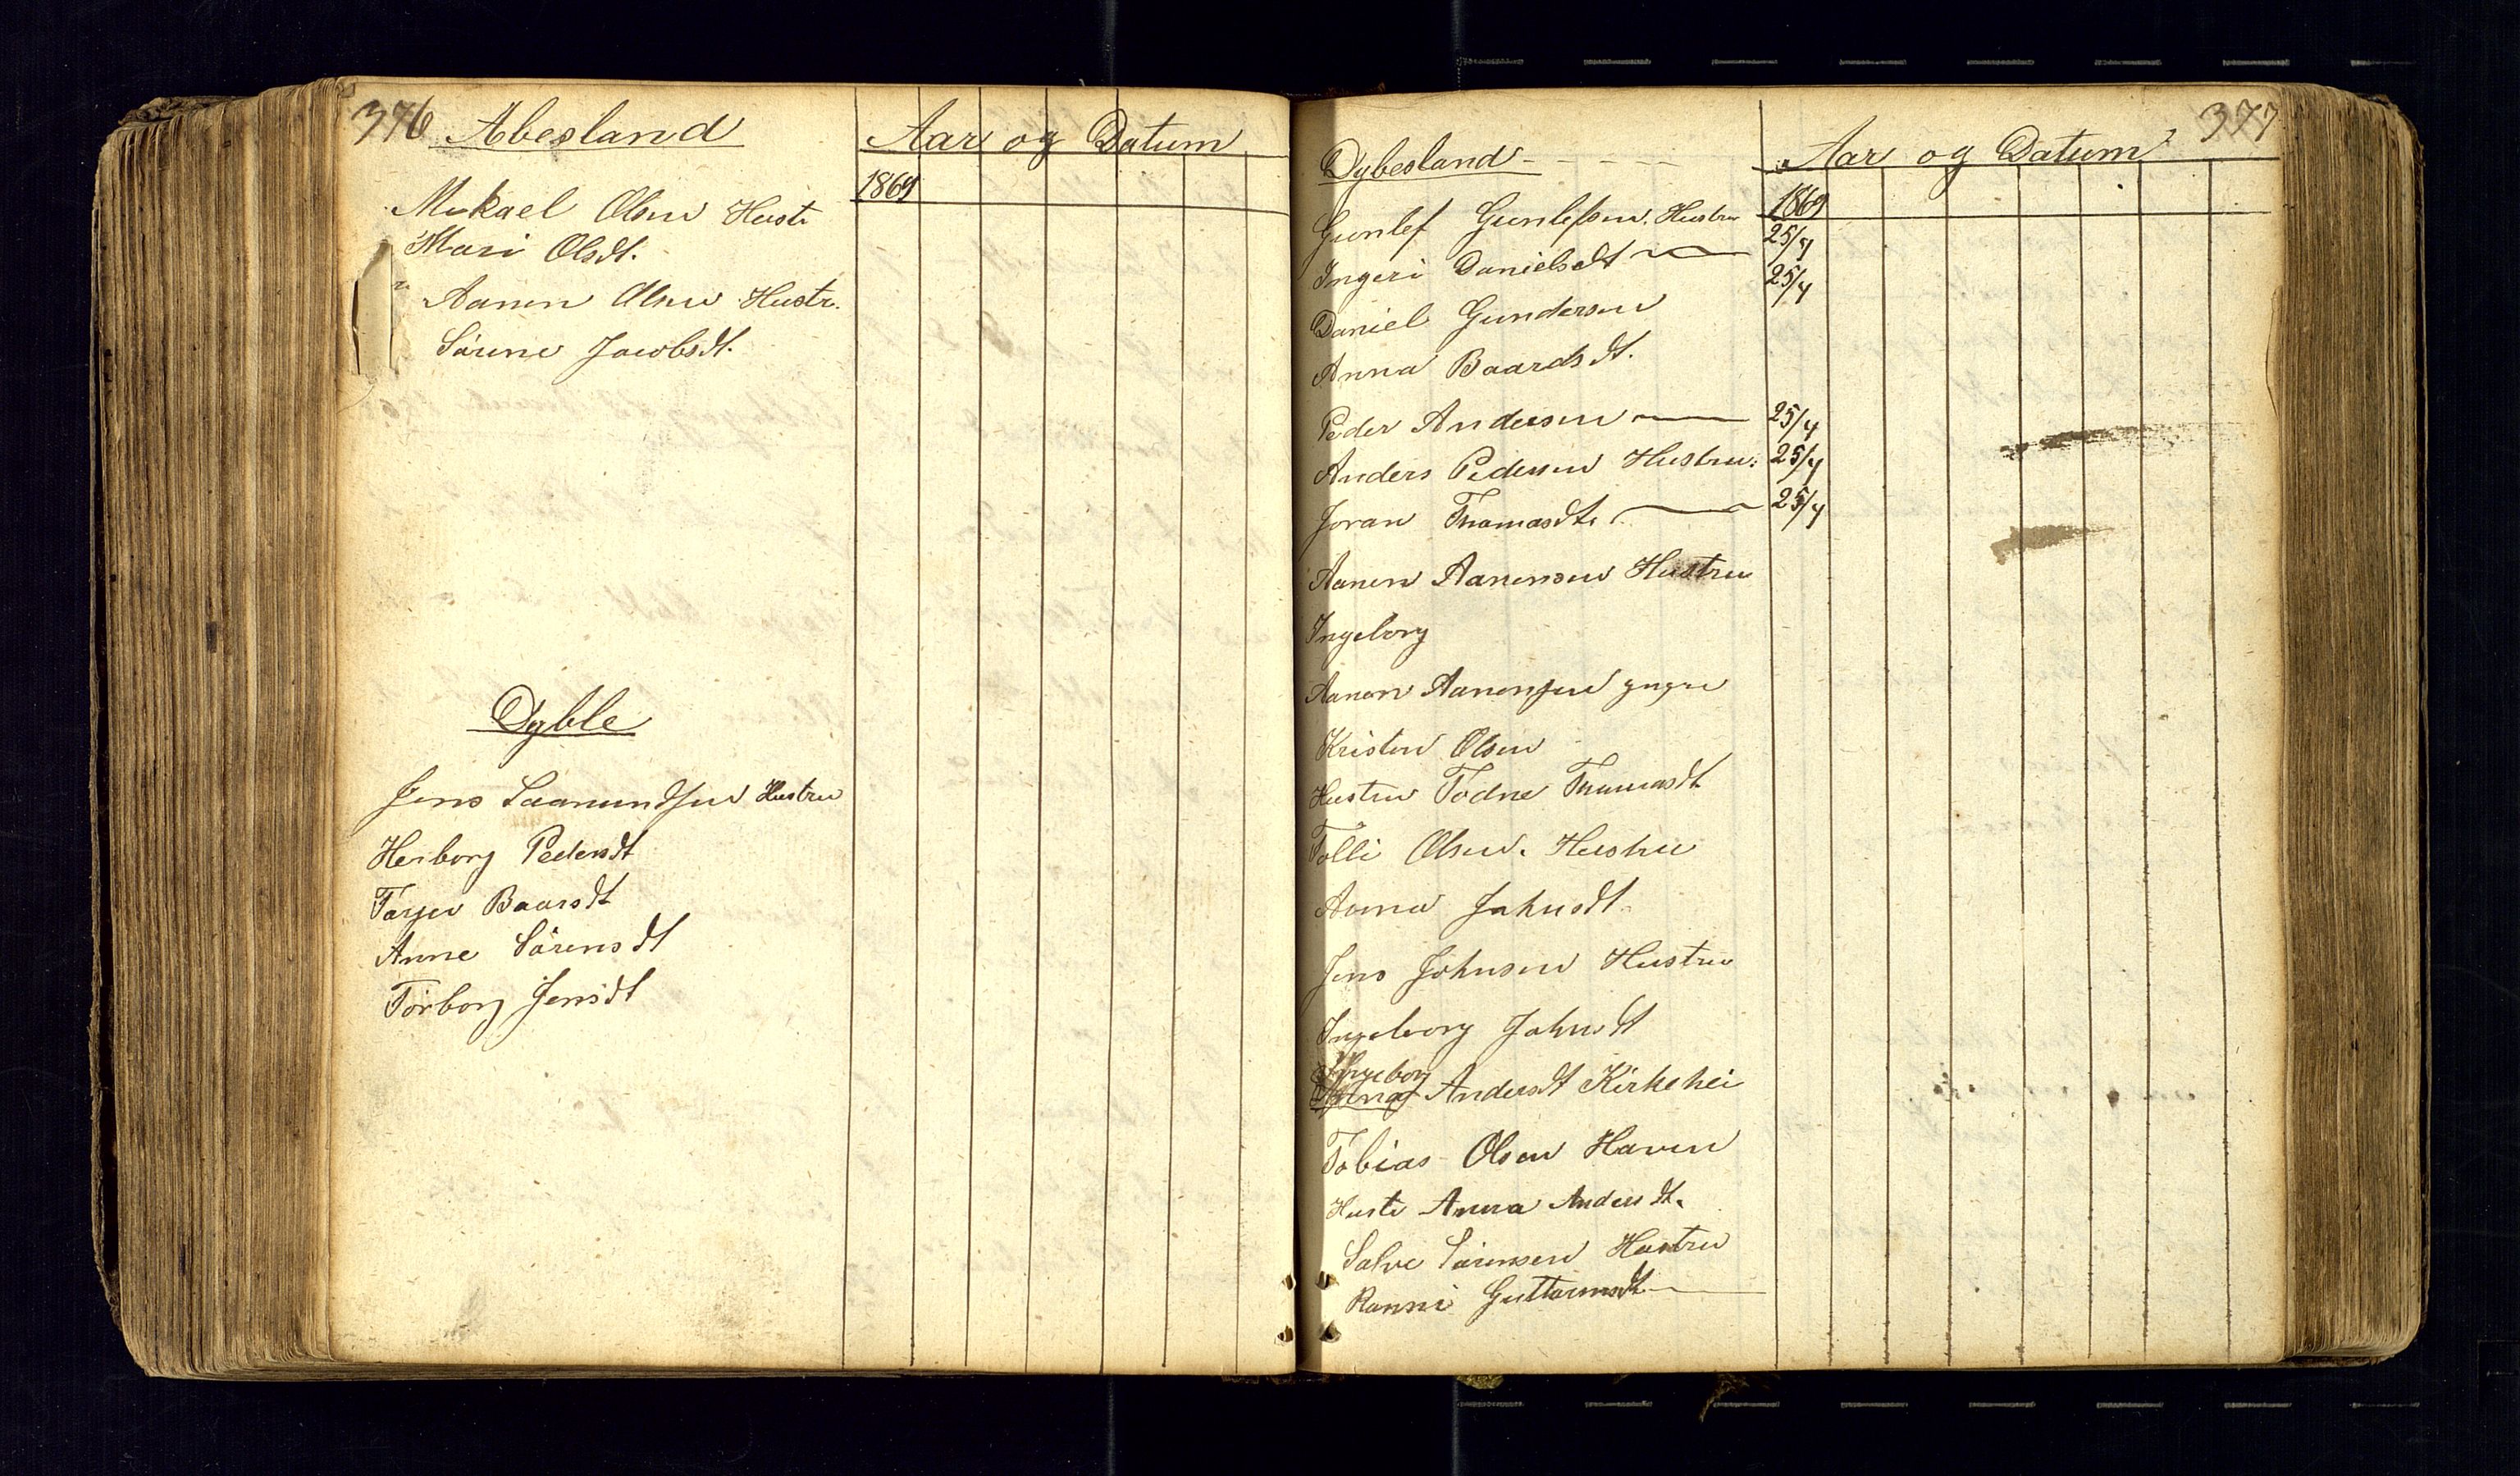 376 Abesland
Aar og Datum
1869
Mikael Olsen Hustr
Mari Olsdt.
Aanen Olsen Hustr.
Sörine Jacobsdt.
Dyble
Jens Saamundsen Hustru
Herborg Pedersdt
Tarjer Baarsdt
Anne Sörensdt
Torborg Jensdt
377
Dybesland
Aar og Datum
1869
Gunlef Gunlefsen. Hustru 25/4
Ingeri Danielsdt 25/4
Daniel Gundersen
Anna Baardsdt.
Peder Andersen 25/4
Anders Pedersen Hustru. 25/4
Joran Thomasdt. 25/4
Aanen Aanensen Hustru
Ingeborg
Aanen Aanensen yngre
Kristen Olsen
Hustru Todne Thomasdt
Tolli Olsen. Hustru
Anna Johnsdt.
Jens Johnsen Hustru
Ingeborg Johnsdt
Ingeborg
Anna Andersdt Kirkehei
Tobias Olsen Haven
Hustr Anna Andersdt.
Salve Sörensen Hustru
Ranni Guttormsdt